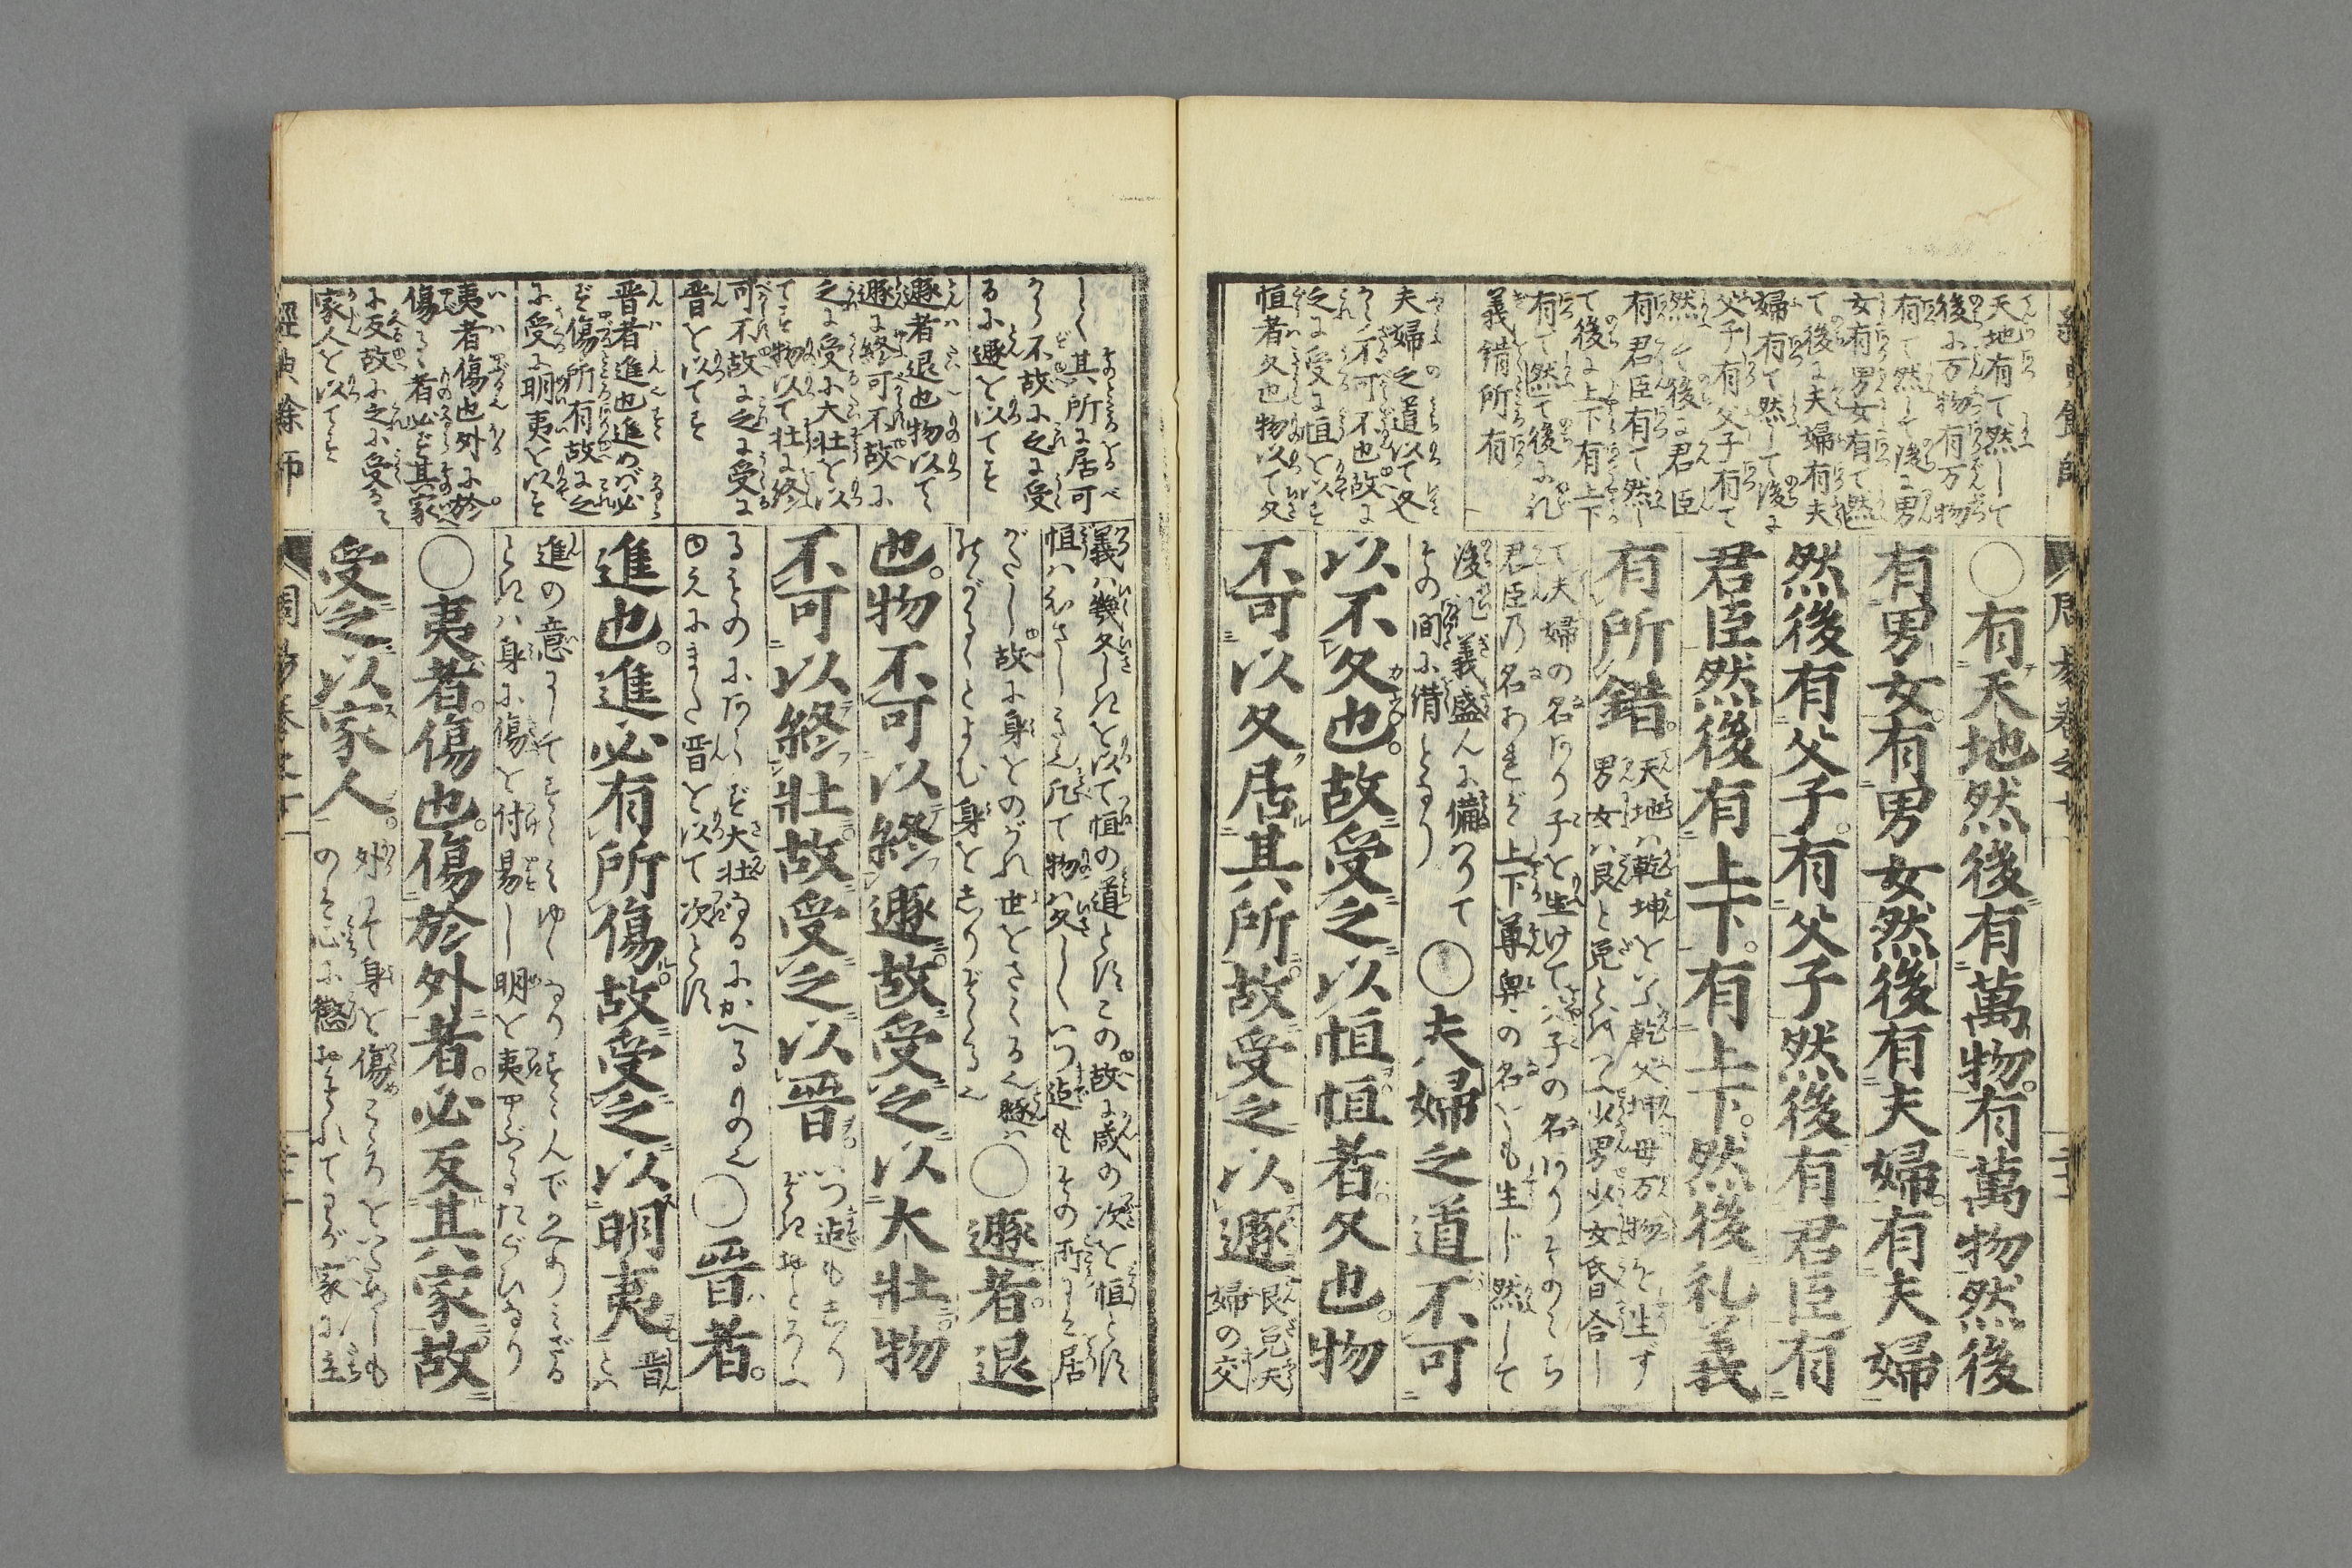 經典餘師
周易卷之七
天地有て然して
後に万物有万物
有て然して後に男
女有男女有て然し
て後に夫婦有夫
婦有て然して後に
父子有父子有て
然して後に君臣
有君臣有て然し
て後に上下有上下
有て然て後に礼
義錯所有
夫婦之道以て久
からざる可不也故に
之に受に恒を以す
恒者久也物以て久
〇有天地然後有萬物。有萬物然後
有男女。有男女然後有夫婦。有夫婦
然後有父子。有父子然後有君臣有
君臣然後有上下。有上下。然後礼義
有所錯。
天地ハ乾坤をいふ乾父坤母万物を生ず
男女ハ艮と兌とをいふ少男少女昏合し
て夫婦の名あり子を生けて父子の名ありそのゝち
君臣乃名あれば上下尊卑の名いも生じ然して
後に義盛んに備りて
その間に措となり
〇夫婦之道不可
以不久也。故受之以恒恒者久也。物
不可以久居其所。故受之以遯
艮兌夫
婦の交
しく其所に居可
からず不故に之に受
るに遯を以てす
遯者退也物以て
遯に終可不故に
之に受に大壮を以
てす物以て壮に終
可不故に之に受に
晋を以てす
晋者進也進めば必
ず傷所有故に之
に受に明夷を以す
夷者傷也外に於
傷るゝ者必ず其家
に反故に之に受るに
家人を以てす
義ハ幾久しきを以て恒の道とすこの故に咸の次を恒とす
恒ハ久しき也凡て物ハ久しくいつ迄もその所に居
がたし故に身をのがれ世をさくる也遯ハ
のがるゝとよむ身をしりぞくる也
〇遯者退
也。物不可以終遯。故受之以大壯。物
不可以終壯。故受之以晋。
いつ迄もしり
ぞきおとろへ
るものにあらず大壮なるにかへるもの也
ゆえにまた晋を以て次とす
〇晋者。
進也。進必有所傷。故受之以明夷
晋
とハ
進の意にしてすゝみゆくなりすゝんで止のみざる
ときハ身に傷を付易し明を夷やぶるたぐひなり
〇夷者。傷也。傷於外者。必反其家。故
受之以家人。
外にて身を傷ところをいためしも
のハ心に懲おそれてわが家に立
經典餘師
周易卷之七